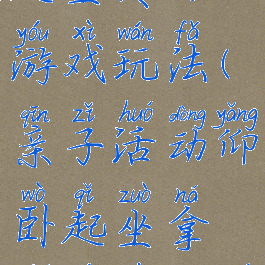 yóu xì wán fǎ
游戏玩法(
qīn zǐ huó dòng yǎng
亲子活动仰
wò qǐ zuò ná
卧起坐拿